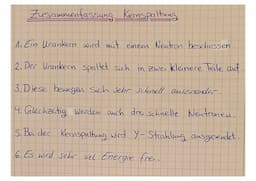 Zusammenfassung Kernspaltung
1. Ein Urankern wird mit einem Neutron beschossen.
2. Der Urankern spaltet sich in zwei kleinere Teile auf.
3. Diese bewegen sich sehr schnell auseinander.
4. Gleichzeitig werden auch drei schnelle Neutronen
5. Bei der Kernspaltung wird γ-Strahlung ausgesendet.
6. Es wird sehr viel Energie frei.